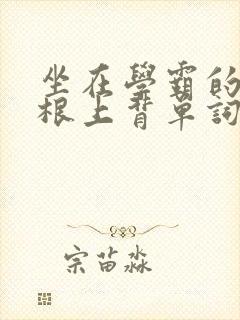 坐在學霸的
根上背單詞
宗苗淼